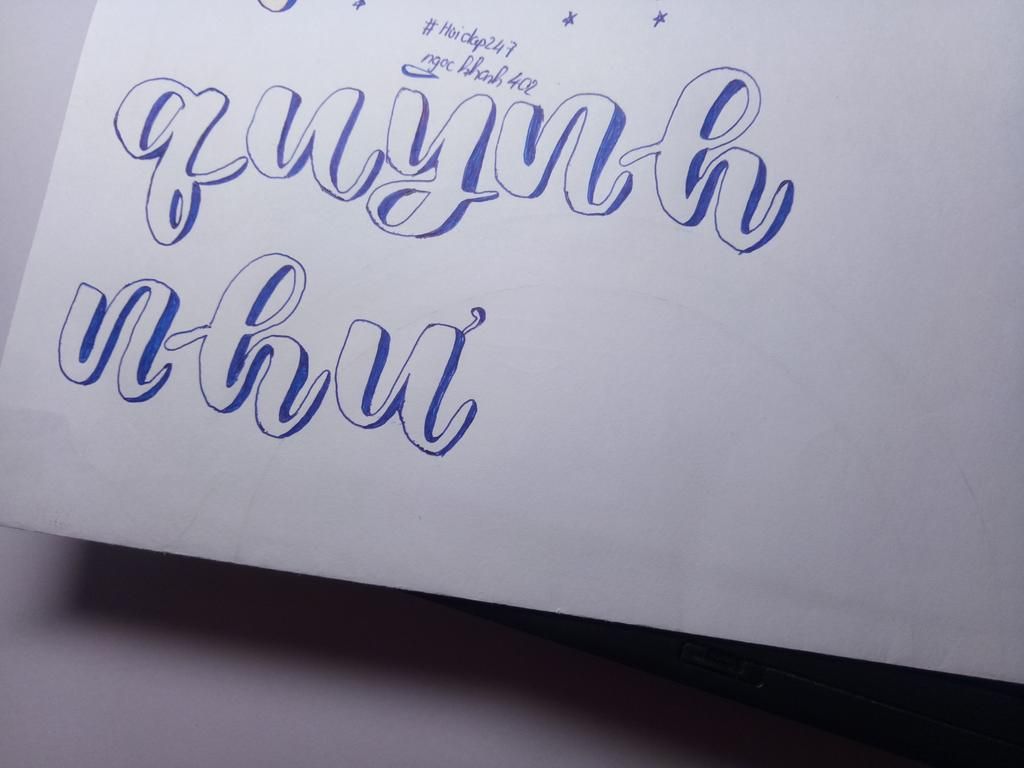 #Hoidap247
ngockhanh402
quỳnh
như